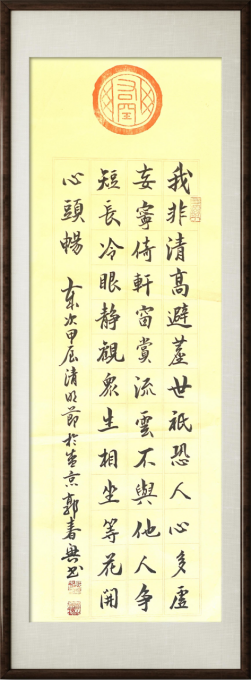 我非清高避塵世祇恐人心多虛
妄寧倚軒窗賞流雲不與他人争
短長冷眼靜觀衆生相坐等花開
心頭暢
歲次甲辰清明節於北京郭春興书